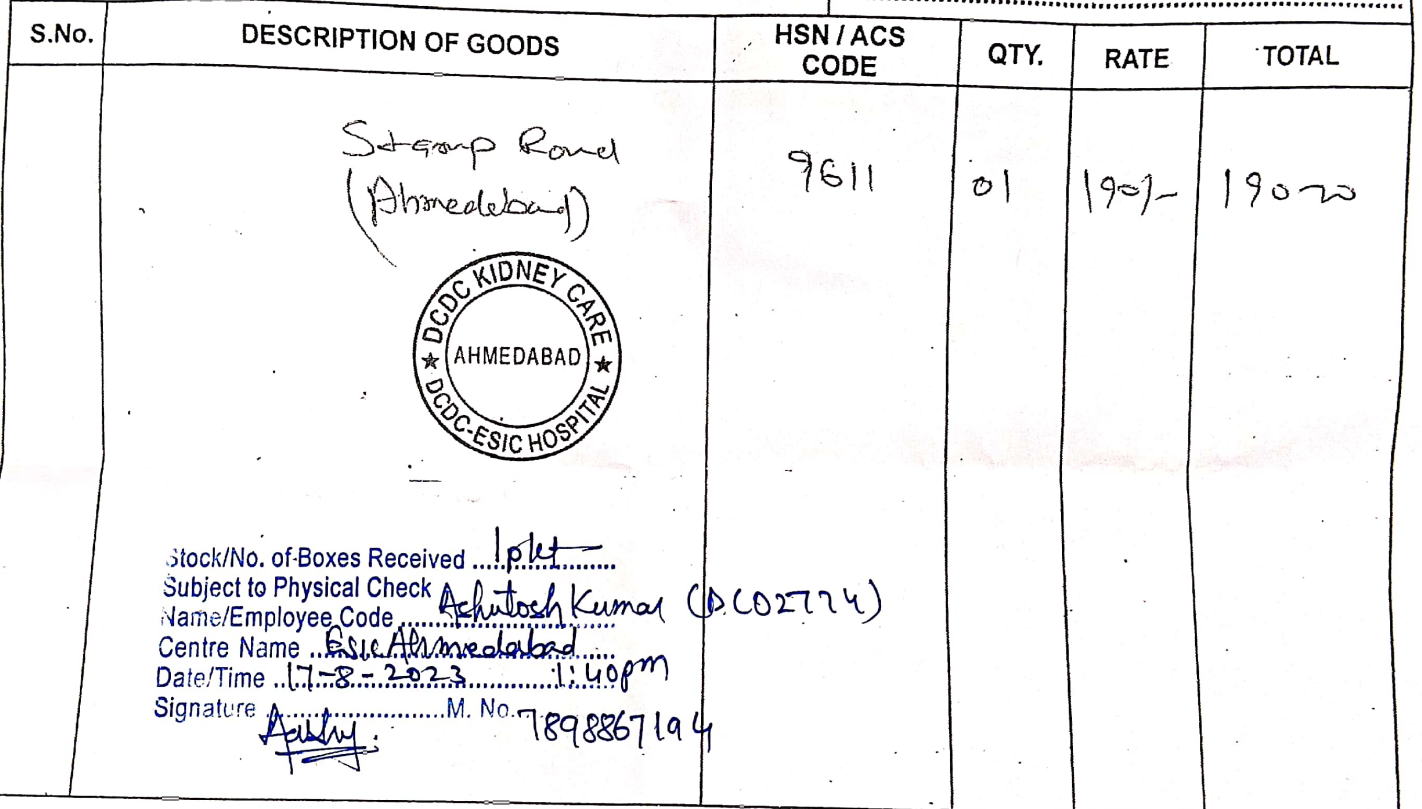 S.No. DESCRIPTION OF GOODS HSN / ACS CODE QTY. RATE TOTAL
Stamp Round 9611 01 190/- 190-00
(Ahmedabad)
DCDC KIDNEY CARE
★ AHMEDABAD ★
DCDC-ESIC HOSPITAL
Stock/No. of Boxes Received 1 pkt
Subject to Physical Check
Name/Employee Code Ashutosh Kumar (DC02774)
Centre Name ESIC Ahmedabad
Date/Time 17-8-2023 1:40pm
Signature Aashu. M. No. 7898867194